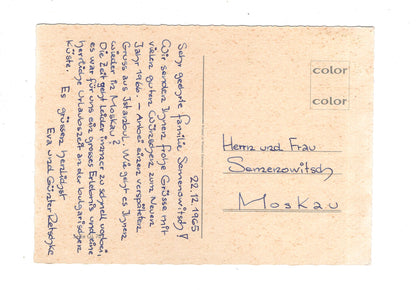 22.12.1965
Sehr geehrte Familie Semenowitsch!
Wir senden Ihnen frohe Grüsse mit
vielen guten Wünschen zum Neuen
Jahr 1966. – Anbei einen verspäteten
Gruss aus Istanbul. Wie geht es Ihnen
wieder in Moskau?
Die Zeit geht leider immer zu schnell vorbei,
es war für uns ein grosses Erlebnis und eine
herrliche Urlaubszeit an der bulgarischen
Küste.
Es grüssen herzlichst
Eva und Günter
color
color
Herrn und Frau
Semenowitsch
Moskau